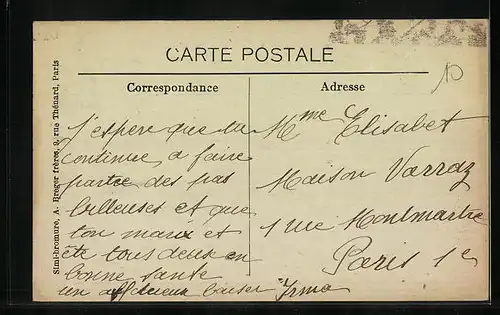 CARTE POSTALE
Correspondance
J'espere que tu
continue a faire
partie des pas
billeuses et que
ton mari et
ete tous deux en
bonne sante
un affectueux baiser Irma
Adresse
Mme Elisabet
Maison Varraz
1 rue Montmartre
Paris 1e
Simi-bromure, A. Breger frères, 9, rue Thénard, Paris